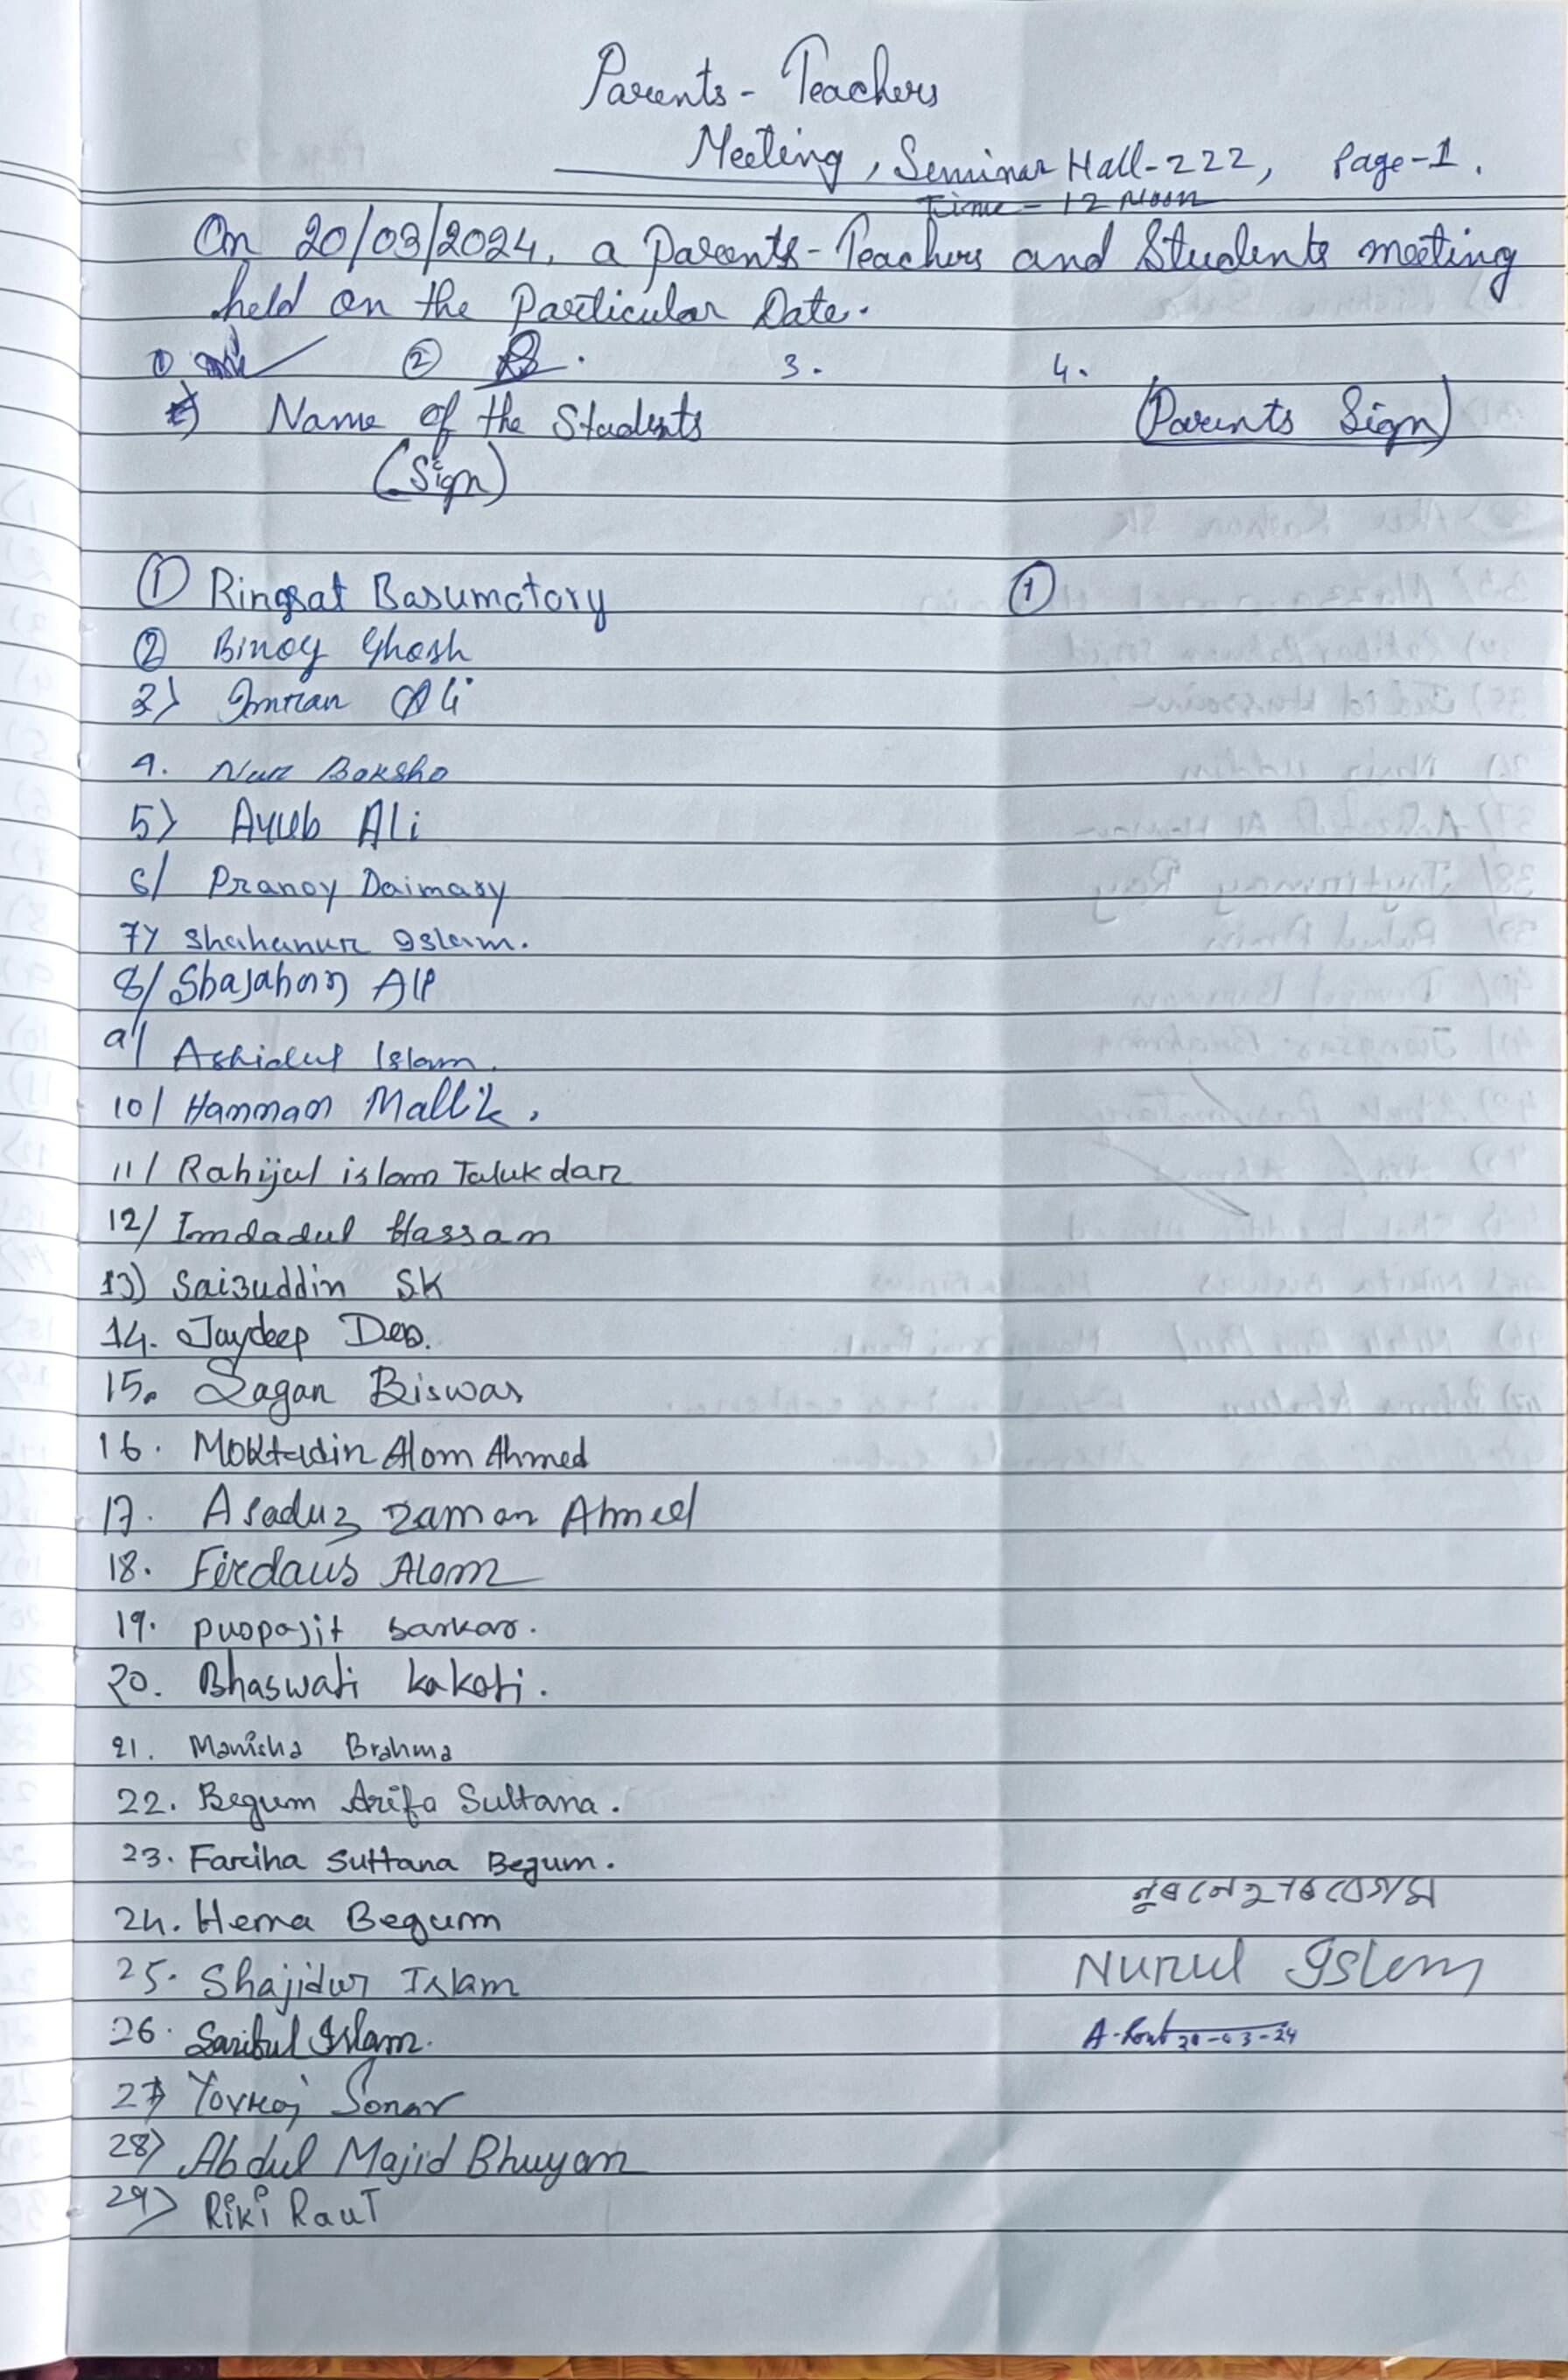 Parents - Teachers
Meeting, Seminar Hall-222, Page-1.
Time - 12 Noon
On 20/03/2024, a Parents-Teachers and Students meeting
held on the Particular Date.
① ② 3. 4.
Name of the Students (Parents Sign)
(Sign)
① Ringsat Basumotory ①
② Binoy Ghosh
3) Imran Ali
4. Nur Boksho
5) Ayub Ali
6/ Pranoy Daimary
7) Shahanur Islam.
8/ Shajahan Ali
9/ Ashidul Islam.
10/ Hannan Mallik.
11/ Rahijul islam Talukdar
12/ Imdadul Hassan
13) Saizuddin SK
14. Jaydeep Das.
15. Sagar Biswas
16. Moktadin Alom Ahmed
17. Asaduz zaman Ahmed
18. Firdaus Alom
19. sarkar.
20. Bhaswati kakoti.
21. Manisha Brahma
22. Begum Arifa Sultana.
23. Fariha Sultana Begum.
24. Hema Begum
25. Shajidur Islam Nurul Islam
26. Saribul Islam. 20-03-24
27) Sonar
28) Abdul Majid Bhuyan
29) Riki Raut